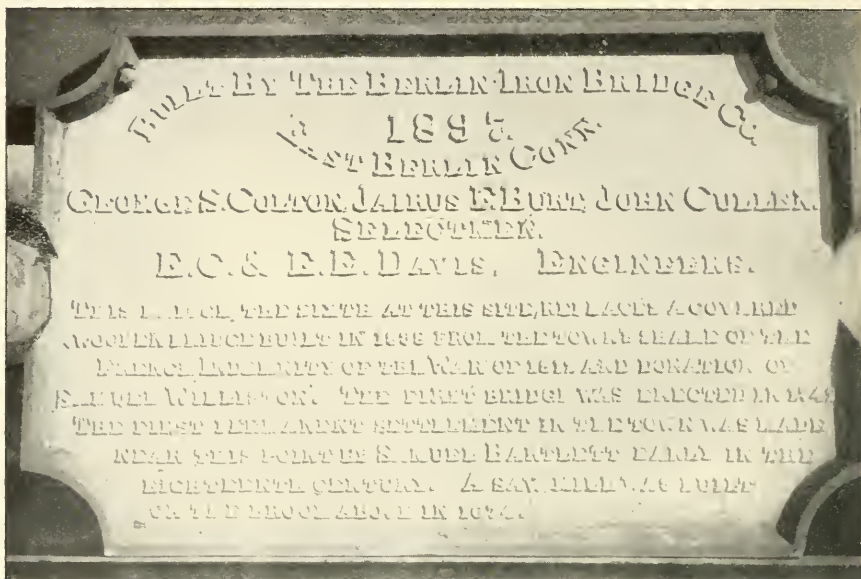 BUILT BY THE BERLIN IRON BRIDGE CO.
1895.
EAST BERLIN CONN.
GEORGE S. COLTON, JAIRUS F. BURT, JOHN CULLEN.
SELECTMEN.
E.C. & E.E. DAVIS, ENGINEERS.
THIS BRIDGE, THE AT THIS SITE, REPLACES A COVERED
WOODEN BRIDGE BUILT IN FROM THE TOWN'S SHARE OF THE
FRENCH INDEMNITY OF THE WAR OF 1812, AND DONATION OF
SAMUEL WILLISTON. THE FIRST BRIDGE WAS ERECTED IN
THE FIRST PERMANENT SETTLEMENT IN THE TOWN WAS MADE
NEAR THIS POINT BY SAMUEL BARTLETT EARLY IN THE
EIGHTEENTH CENTURY. A SAW MILL WAS BUILT
ON THE BROOK ABOVE IN